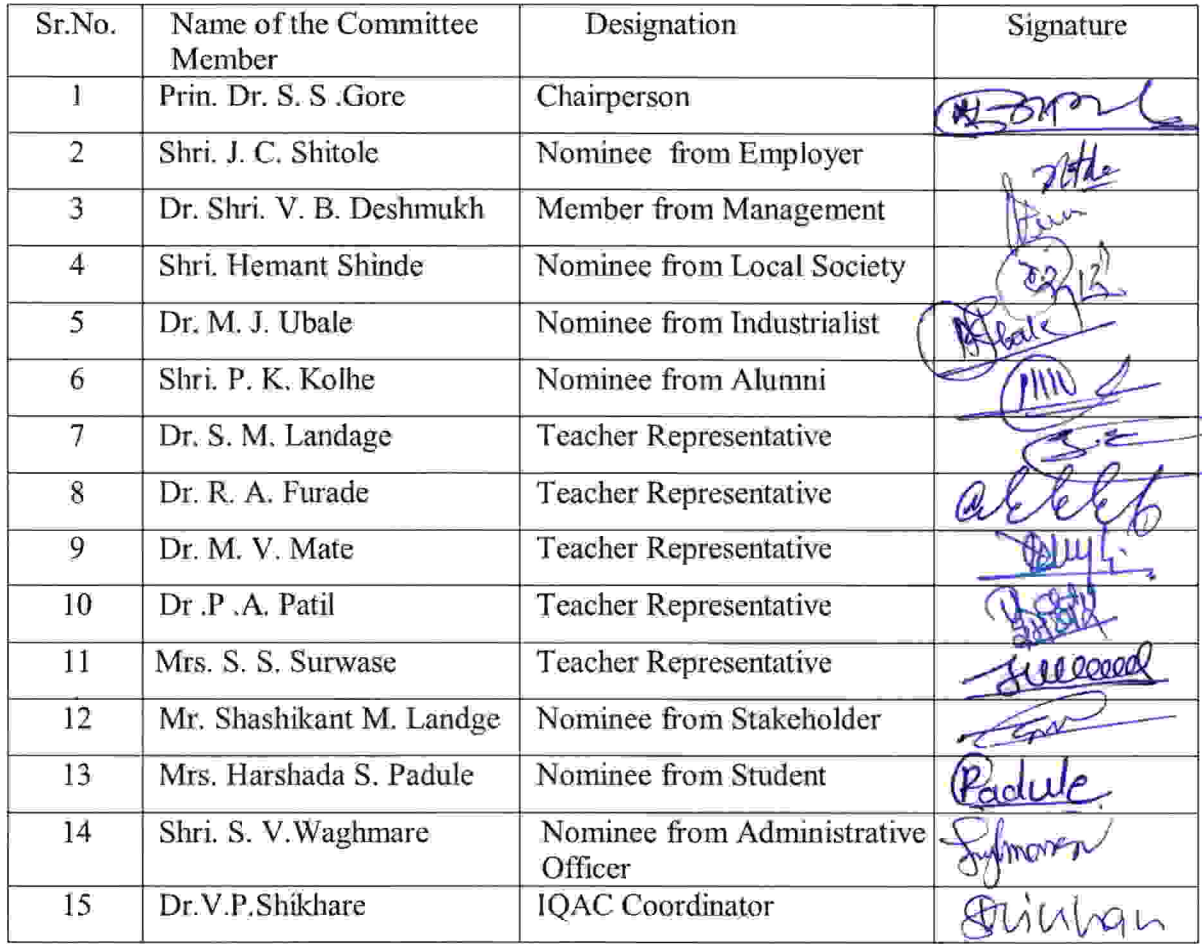 Sr.No. Name of the Committee Member Designation Signature
1 Prin. Dr. S. S .Gore Chairperson
2 Shri. J. C. Shitole Nominee from Employer
3 Dr. Shri. V. B. Deshmukh Member from Management
4 Shri. Hemant Shinde Nominee from Local Society
5 Dr. M. J. Ubale Nominee from Industrialist
6 Shri. P. K. Kolhe Nominee from Alumni
7 Dr. S. M. Landage Teacher Representative
8 Dr. R. A. Furade Teacher Representative
9 Dr. M. V. Mate Teacher Representative
10 Dr .P .A. Patil Teacher Representative
11 Mrs. S. S. Surwase Teacher Representative
12 Mr. Shashikant M. Landge Nominee from Stakeholder
13 Mrs. Harshada S. Padule Nominee from Student Padule
14 Shri. S. V.Waghmare Nominee from Administrative Officer
15 Dr.V.P.Shikhare IQAC Coordinator